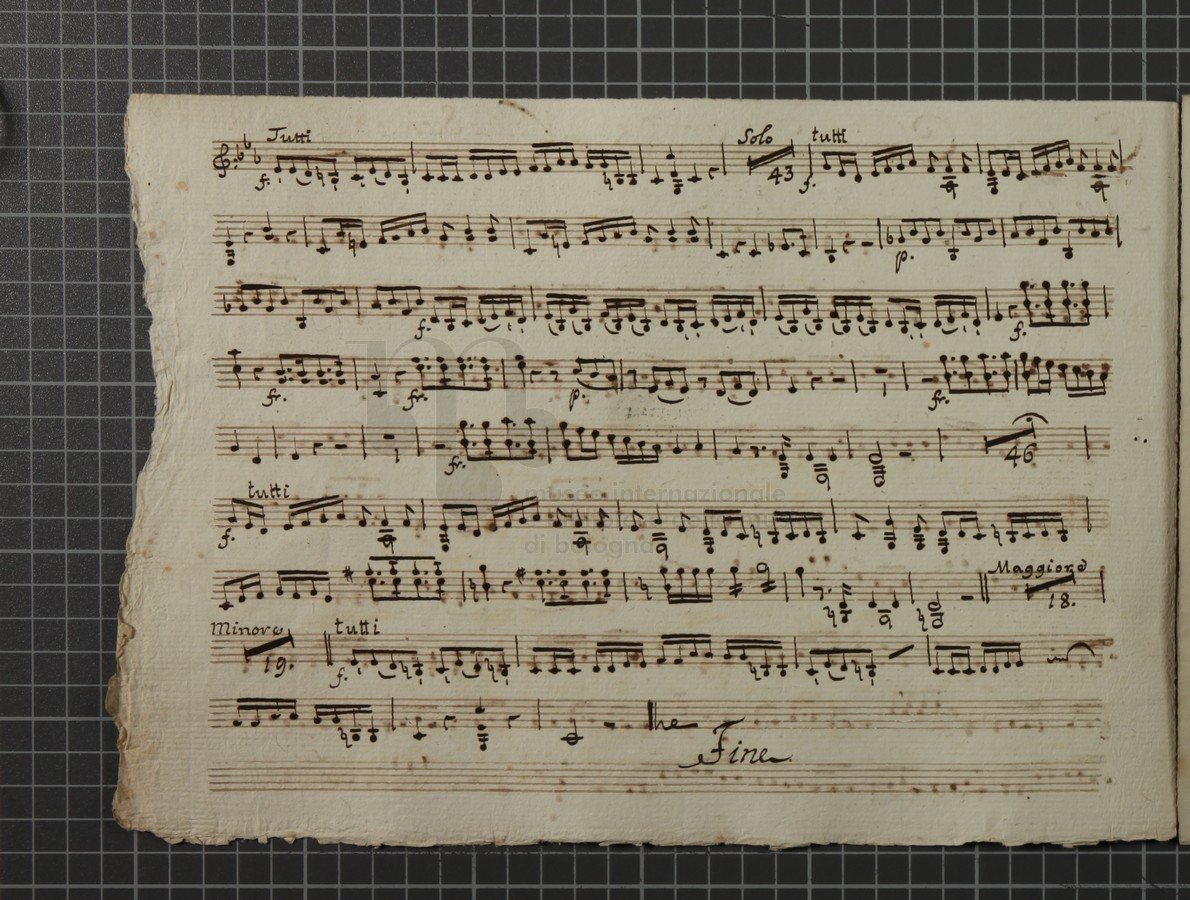 Tutti Solo tutti
f. 43 f.
p.
f. f.
fr. fr. p. fr.
fr. 46
tutti
f.
museo internazionale
di bologna
Maggiore
18.
Minore tutti
19. f.
Fine